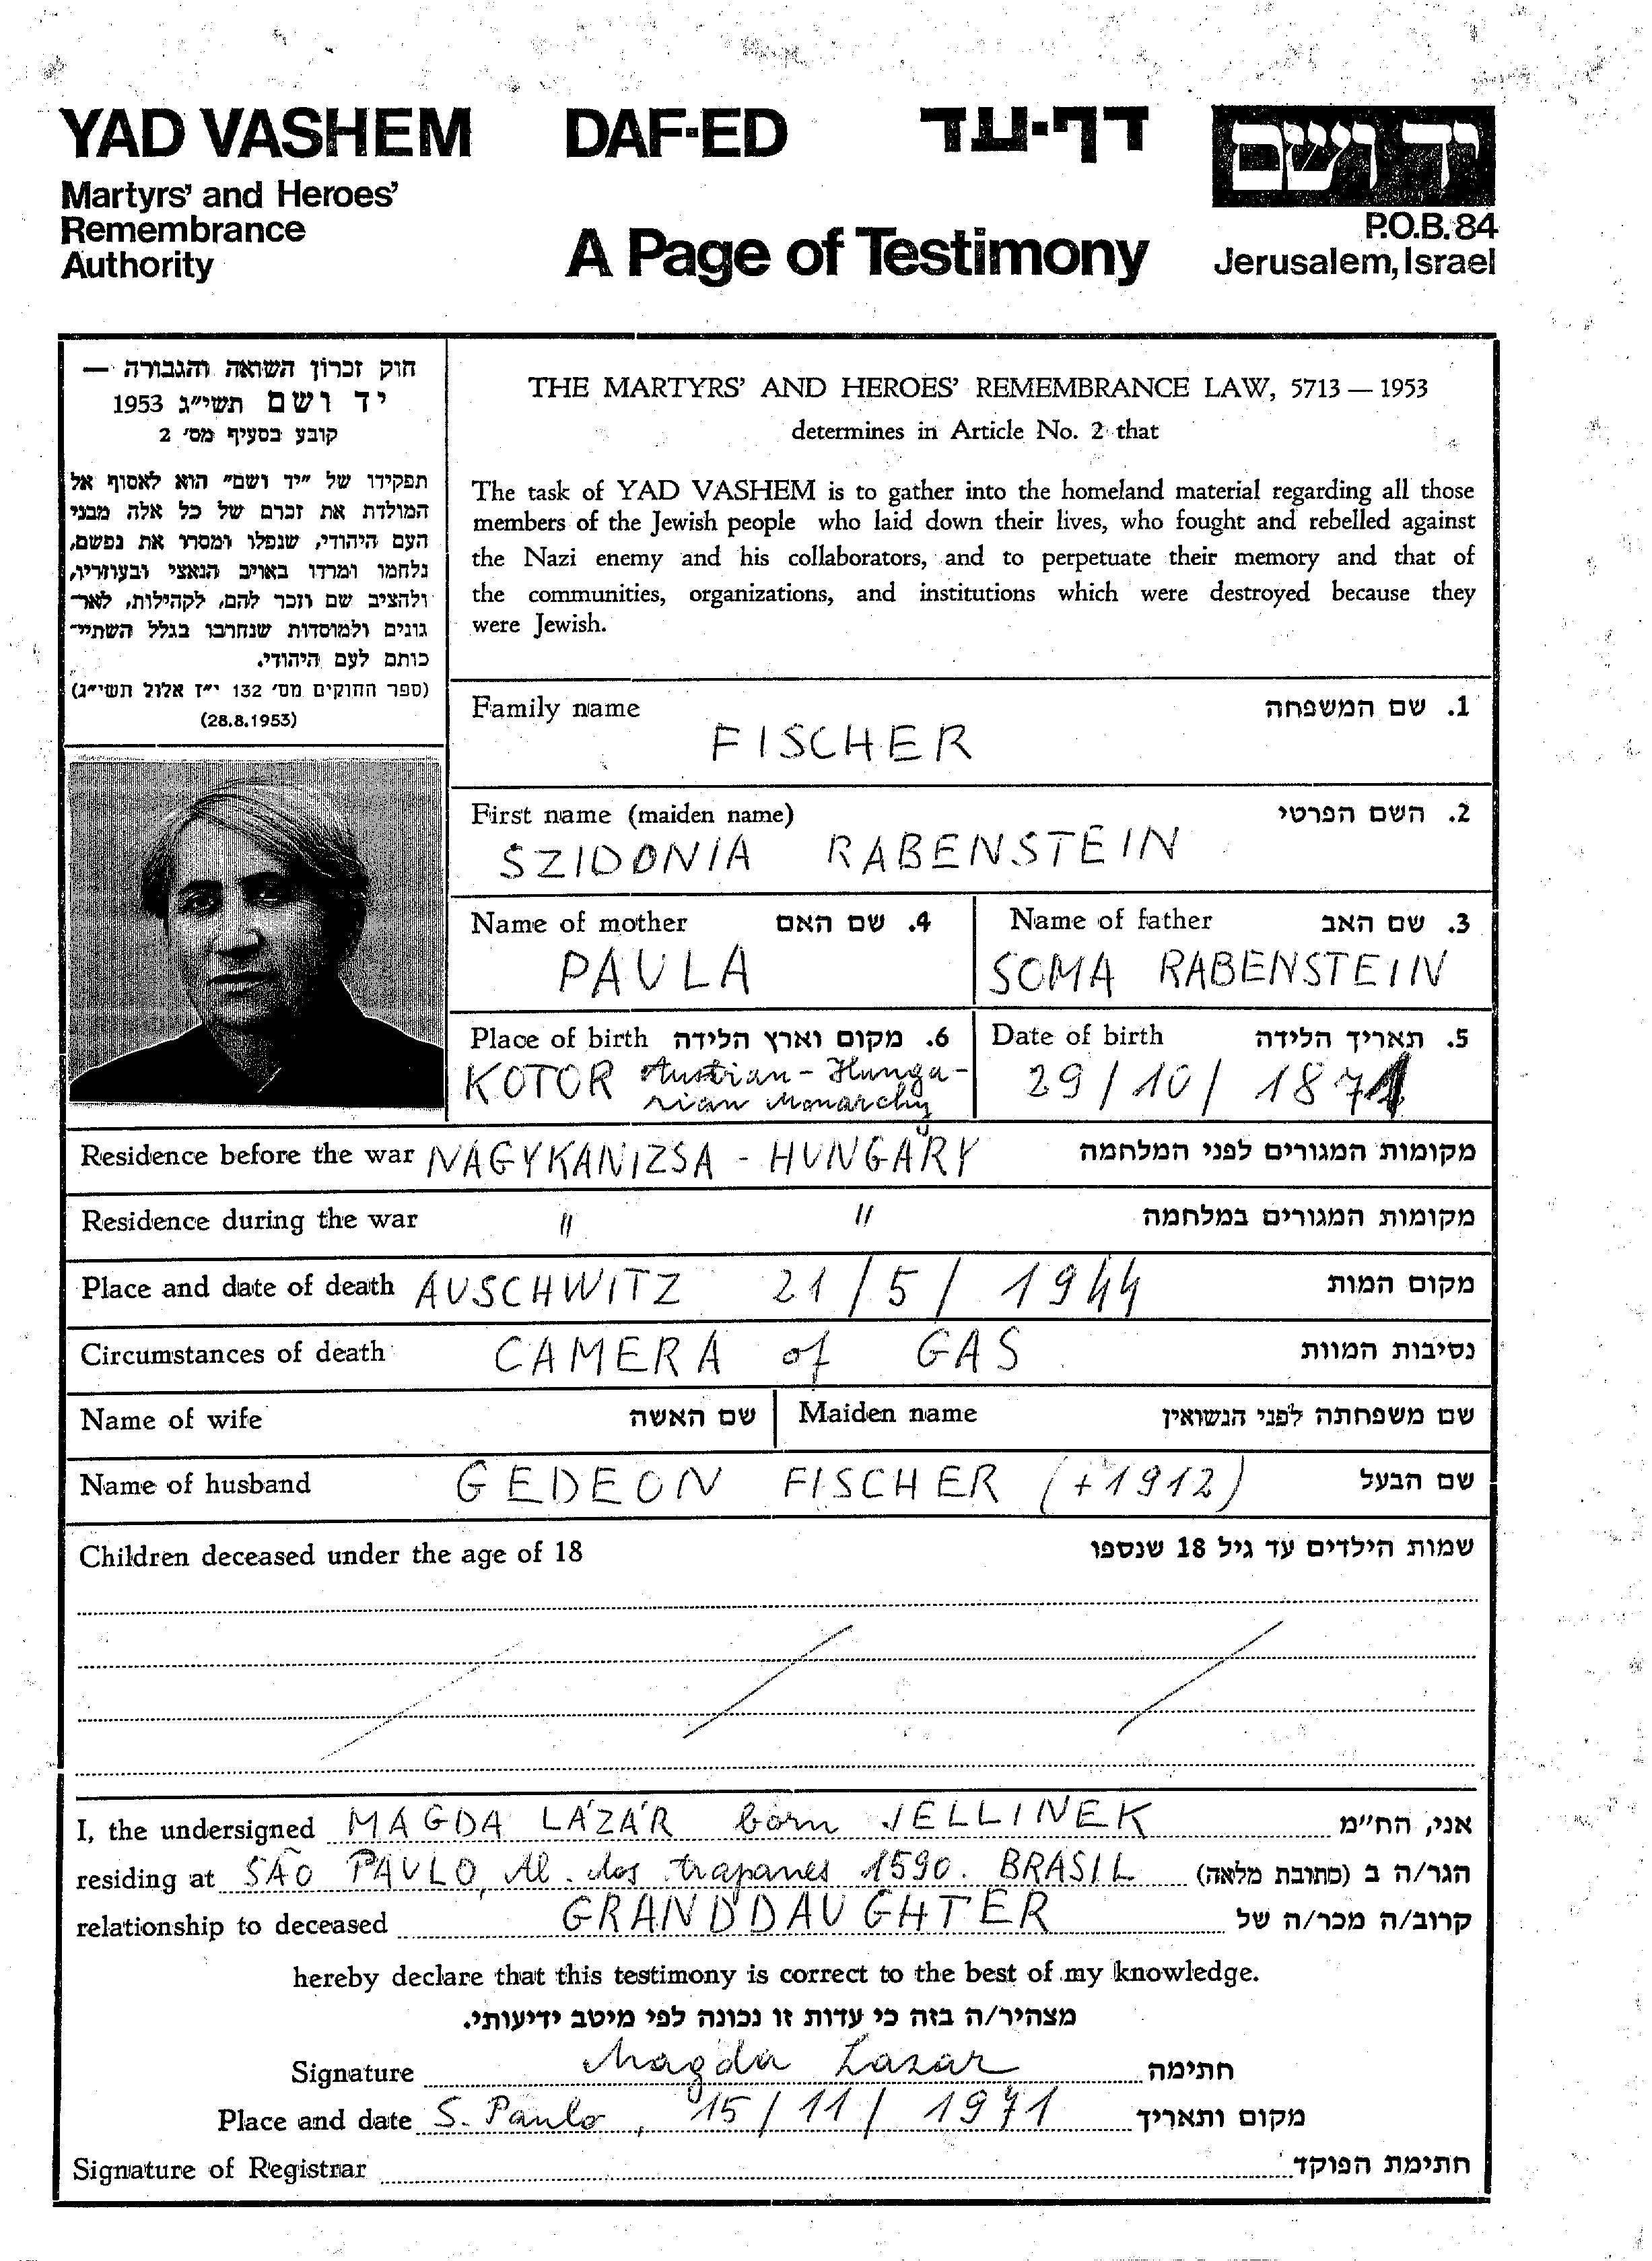 YAD VASHEM DAF-ED דף-עד יד ושם
Martyrs' and Heroes'
Remembrance
Authority
A Page of Testimony
P.O.B. 84
Jerusalem, Israel
חוק זכרון השואה והגבורה —
יד ושם תשי״ג 1953
קובע בסעיף מס׳ 2
תפקידו של ״יד ושם״ הוא לאסוף אל
המולדת את זכרם של כל אלה מבני
העם היהודי, שנפלו ומסרו את נפשם,
נלחמו ומרדו באויב הנאצי ובעוזריו,
ולהציב שם וזכר להם, לקהילות, לאר־
גונים ולמוסדות שנחרבו בגלל השתיי־
כותם לעם היהודי.
(ספר החוקים מס׳ 132 י״ז אלול תשי״ג)
(28.8.1953)
THE MARTYRS' AND HEROES' REMEMBRANCE LAW, 5713 — 1953
determines in Article No. 2 that
The task of YAD VASHEM is to gather into the homeland material regarding all those
members of the Jewish people who laid down their lives, who fought and rebelled against
the Nazi enemy and his collaborators, and to perpetuate their memory and that of
the communities, organizations, and institutions which were destroyed because they
were Jewish.
Family name 1. שם המשפחה
FISCHER
First name (maiden name) 2. השם הפרטי
SZIDONIA RABENSTEIN
Name of mother 4. שם האם Name of father 3. שם האב
PAULA SOMA RABENSTEIN
Place of birth 6. מקום וארץ הלידה Date of birth 5. תאריך הלידה
KOTOR Austrian-Hunga- 29/10/1871
rian Monarchy
Residence before the war NAGYKANIZSA - HUNGARY מקומות המגורים לפני המלחמה
Residence during the war " " מקומות המגורים במלחמה
Place and date of death AUSCHWITZ 21/5/1944 מקום המות
Circumstances of death CAMERA of GAS נסיבות המוות
Name of wife שם האשה Maiden name שם משפחתה לפני הנשואין
Name of husband GEDEON FISCHER (+1912) שם הבעל
Children deceased under the age of 18 שמות הילדים עד גיל 18 שנספו
I, the undersigned MAGDA LÁZÁR born JELLINEK אני, הח״מ
residing at SÃO PAULO, Al. dos trapanes 1590. BRASIL הגר/ה ב (כתובת מלאה)
relationship to deceased GRANDDAUGHTER קרוב/ה מכר/ה של
hereby declare that this testimony is correct to the best of my knowledge.
מצהיר/ה בזה כי עדות זו נכונה לפי מיטב ידיעותי.
Signature Magda Lazar חתימה
Place and date S. Paulo, 15/11/1971 מקום ותאריך
Signature of Registrar חתימת הפוקד